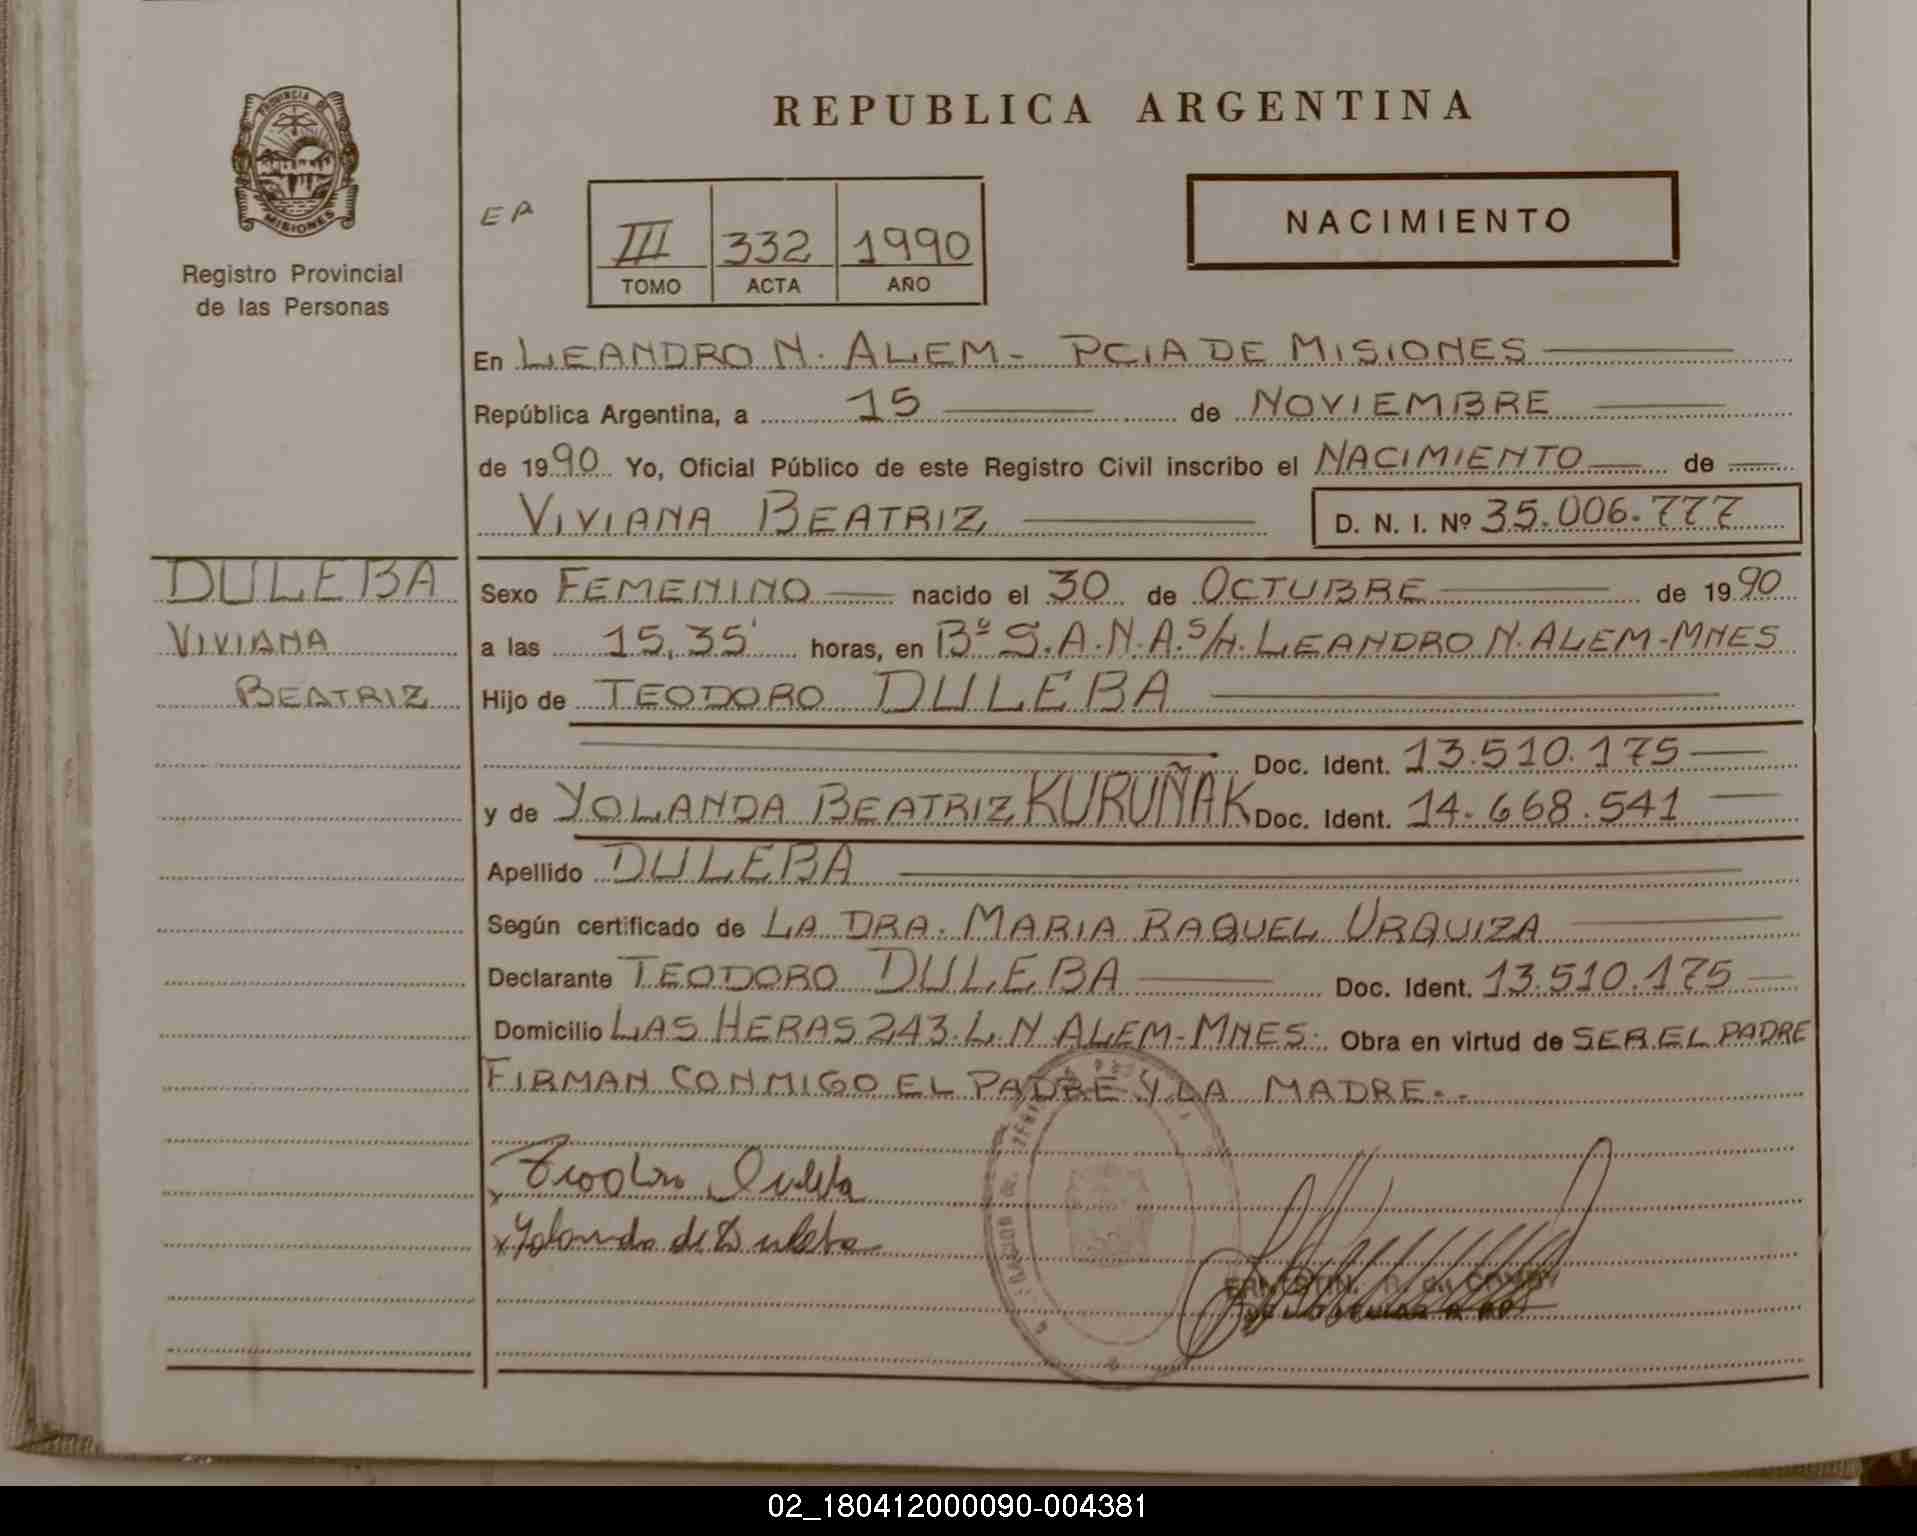 REPUBLICA ARGENTINA
PROVINCIA DE
MISIONES
Registro Provincial
de las Personas
EP
III 332 1990
TOMO ACTA AÑO
NACIMIENTO
En LEANDRO N. ALEM - PCIA DE MISIONES
República Argentina, a 15 de NOVIEMBRE
de 1990 Yo, Oficial Público de este Registro Civil inscribo el NACIMIENTO de
VIVIANA BEATRIZ D. N. I. Nº 35.006.777
DULEBA
VIVIANA
BEATRIZ
Sexo FEMENINO nacido el 30 de OCTUBRE de 1990
a las 15,35' horas, en Bº S.A.N.A. S/N. LEANDRO N. ALEM-MNES
Hijo de TEODORO DULEBA
Doc. Ident. 13.510.175
y de YOLANDA BEATRIZ KURUÑAK Doc. Ident. 14.668.541
Apellido DULEBA
Según certificado de LA DRA. MARIA RAQUEL URQUIZA
Declarante TEODORO DULEBA Doc. Ident. 13.510.175
Domicilio LAS HERAS 243. L. N ALEM-MNES. Obra en virtud de SER EL PADRE
FIRMAN CONMIGO EL PADRE Y LA MADRE.-
Teodoro Duleba
Yolanda de Duleba
02_180412000090-004381